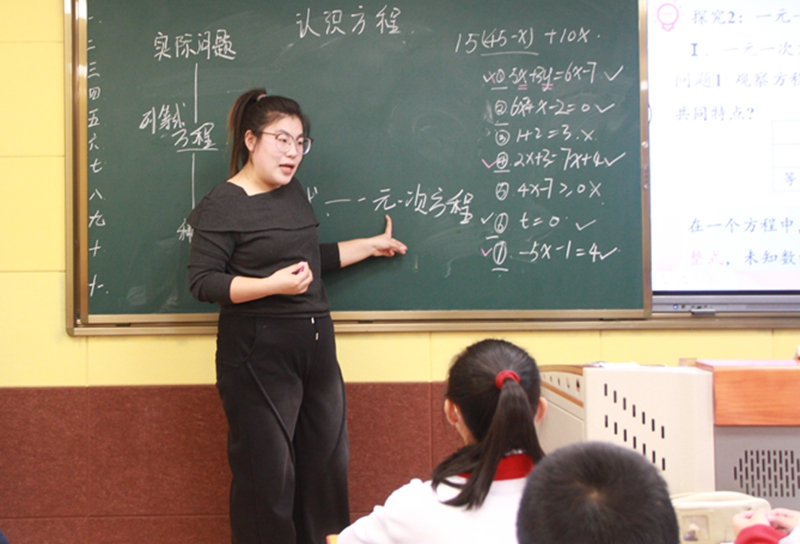 认识方程
一
二
三
四
五
六
七
八
九
十
十一
实际问题
列等式
方程
一元一次方程
15(45-x)+10x
✓① 5x+3y=6x-7 ✓
② 6x²+x-2=0 ✓
③ 1+2=3 ×
✓④ 2x+3=7x+4 ✓
⑤ 4x-7≥0 ×
✓⑥ t=0 ✓
✓⑦ -5x-1=4 ✓
探究2:一元一
1.一元一次
问题1 观察方程
共同特点?
等
在一个方程中,
整式,未知数